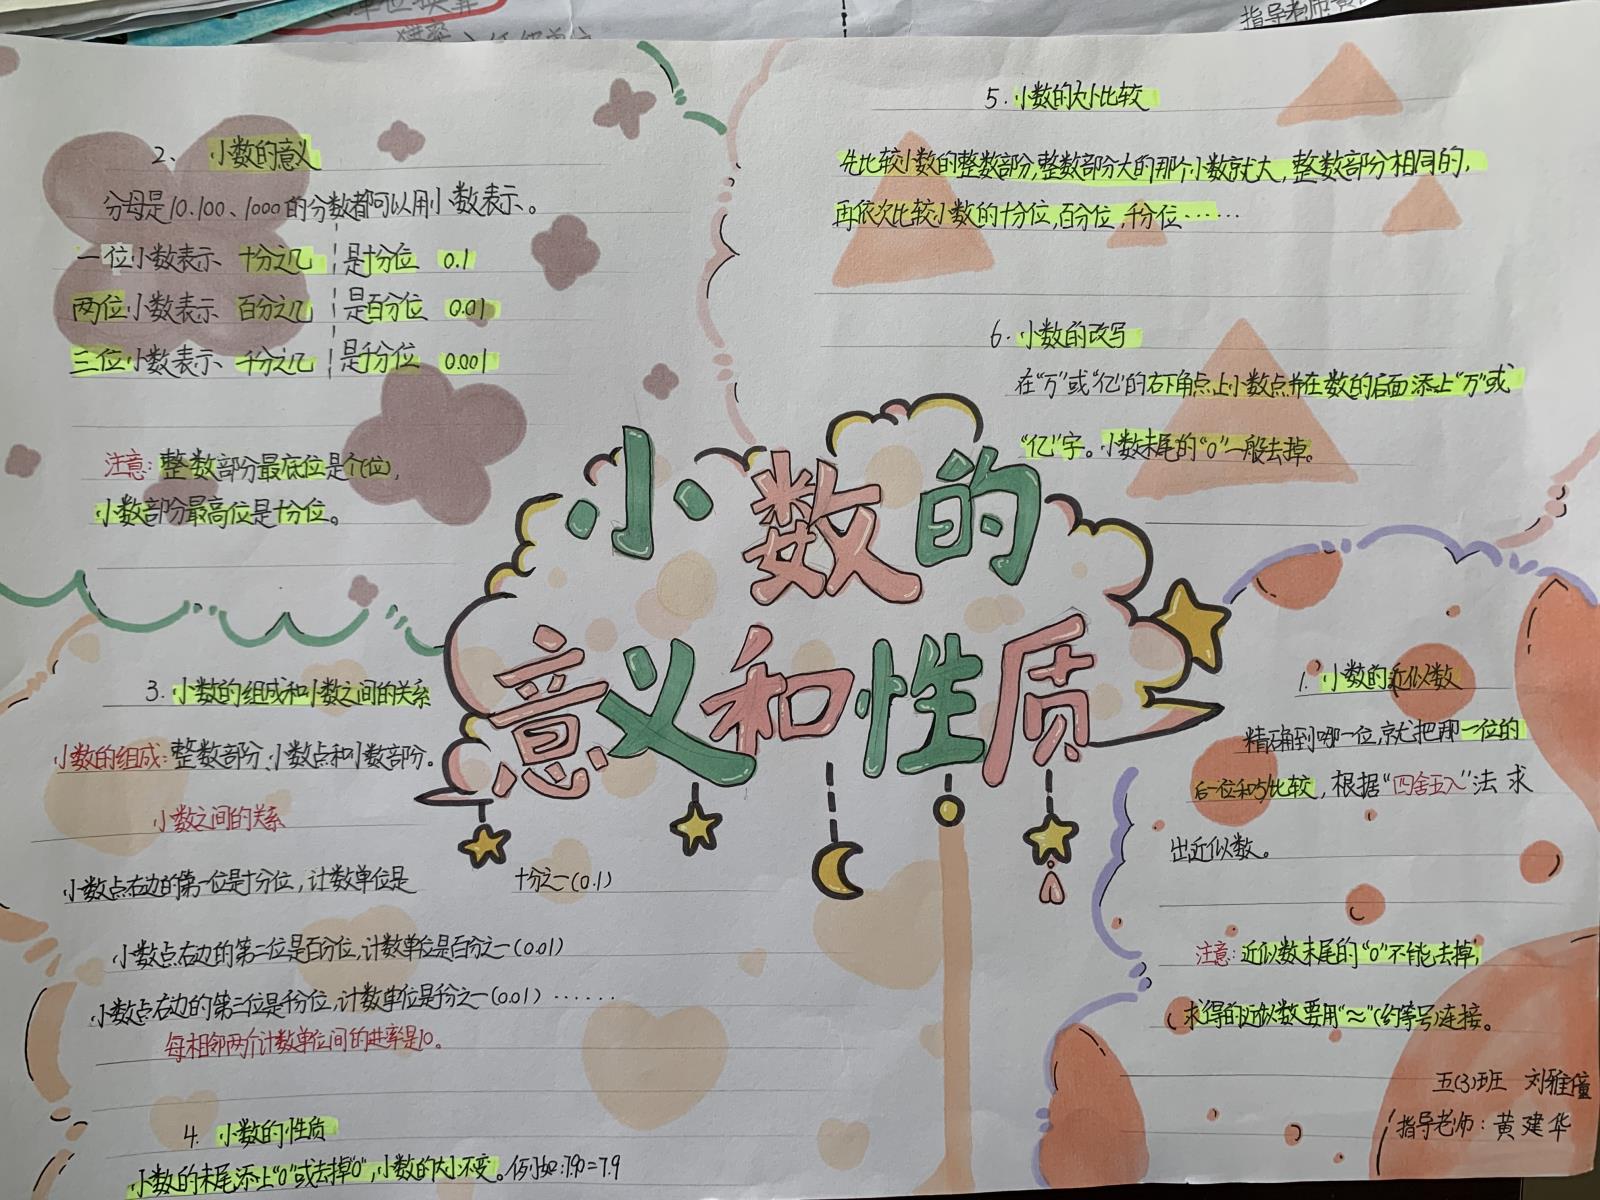 指导老师黄
小数的
意义和性质
2、小数的意义
分母是10.100、1000的分数都可以用小数表示。
一位小数表示 十分之几 是十分位 0.1
两位小数表示 百分之几 是百分位 0.01
三位小数表示 千分之几 是千分位 0.001
注意:整数部分最底位是个位,
小数部分最高位是十分位。
3.小数的组成和小数之间的关系
小数的组成:整数部分、小数点和小数部分。
小数之间的关系
小数点右边的第一位是十分位,计数单位是 十分之一(0.1)
小数点右边的第二位是百分位,计数单位是百分之一(0.01)
小数点右边的第三位是千分位,计数单位是千分之一(0.01)……
每相邻两个计数单位间的进率是10。
4.小数的性质
小数的末尾添上"0"或去掉"0",小数的大小不变。例如:7.90=7.9
5.小数的大小比较
先比较小数的整数部分,整数部分大的那个小数就大,整数部分相同的,
再依次比较小数的十分位,百分位,千分位……
6.小数的改写
在"万"或"亿"的右下角点上小数点并在数的后面添上"万"或
"亿"字。小数末尾的"0"一般去掉。
1.小数的近似数
精确到哪一位,就把那一位的
后一位和5比较,根据"四舍五入"法求
出近似数。
注意:近似数末尾的"0"不能去掉,
求得的近似数要用"≈"(约等号)连接。
五(3)班 刘雅
指导老师:黄建华